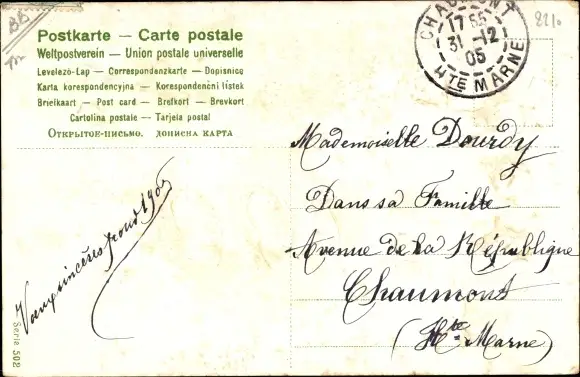 Postkarte — Carte postale
Weltpostverein — Union postale universelle
Levelező-Lap — Correspondenzkarte — Dopisnice
Karta korespondencyjna — Korespondenční lístek
Brielkaart — Post card — Brefkort — Brevkort
Cartolina postale — Tarjeta postal
Открытое-письмо. дописна карта
CHAUMONT
17 55
31 - 12
05
HTE MARNE
221.
Mademoiselle Dourdy
Dans sa Famille
Avenue de la République
Chaumont
(Hte Marne)
Voeux sincères pour 1906
Serie 502